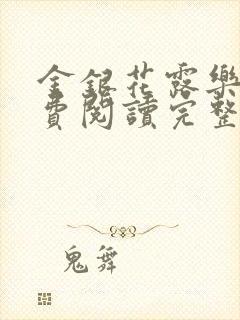 金銀花露樂
費閱讀完整
鬼舞